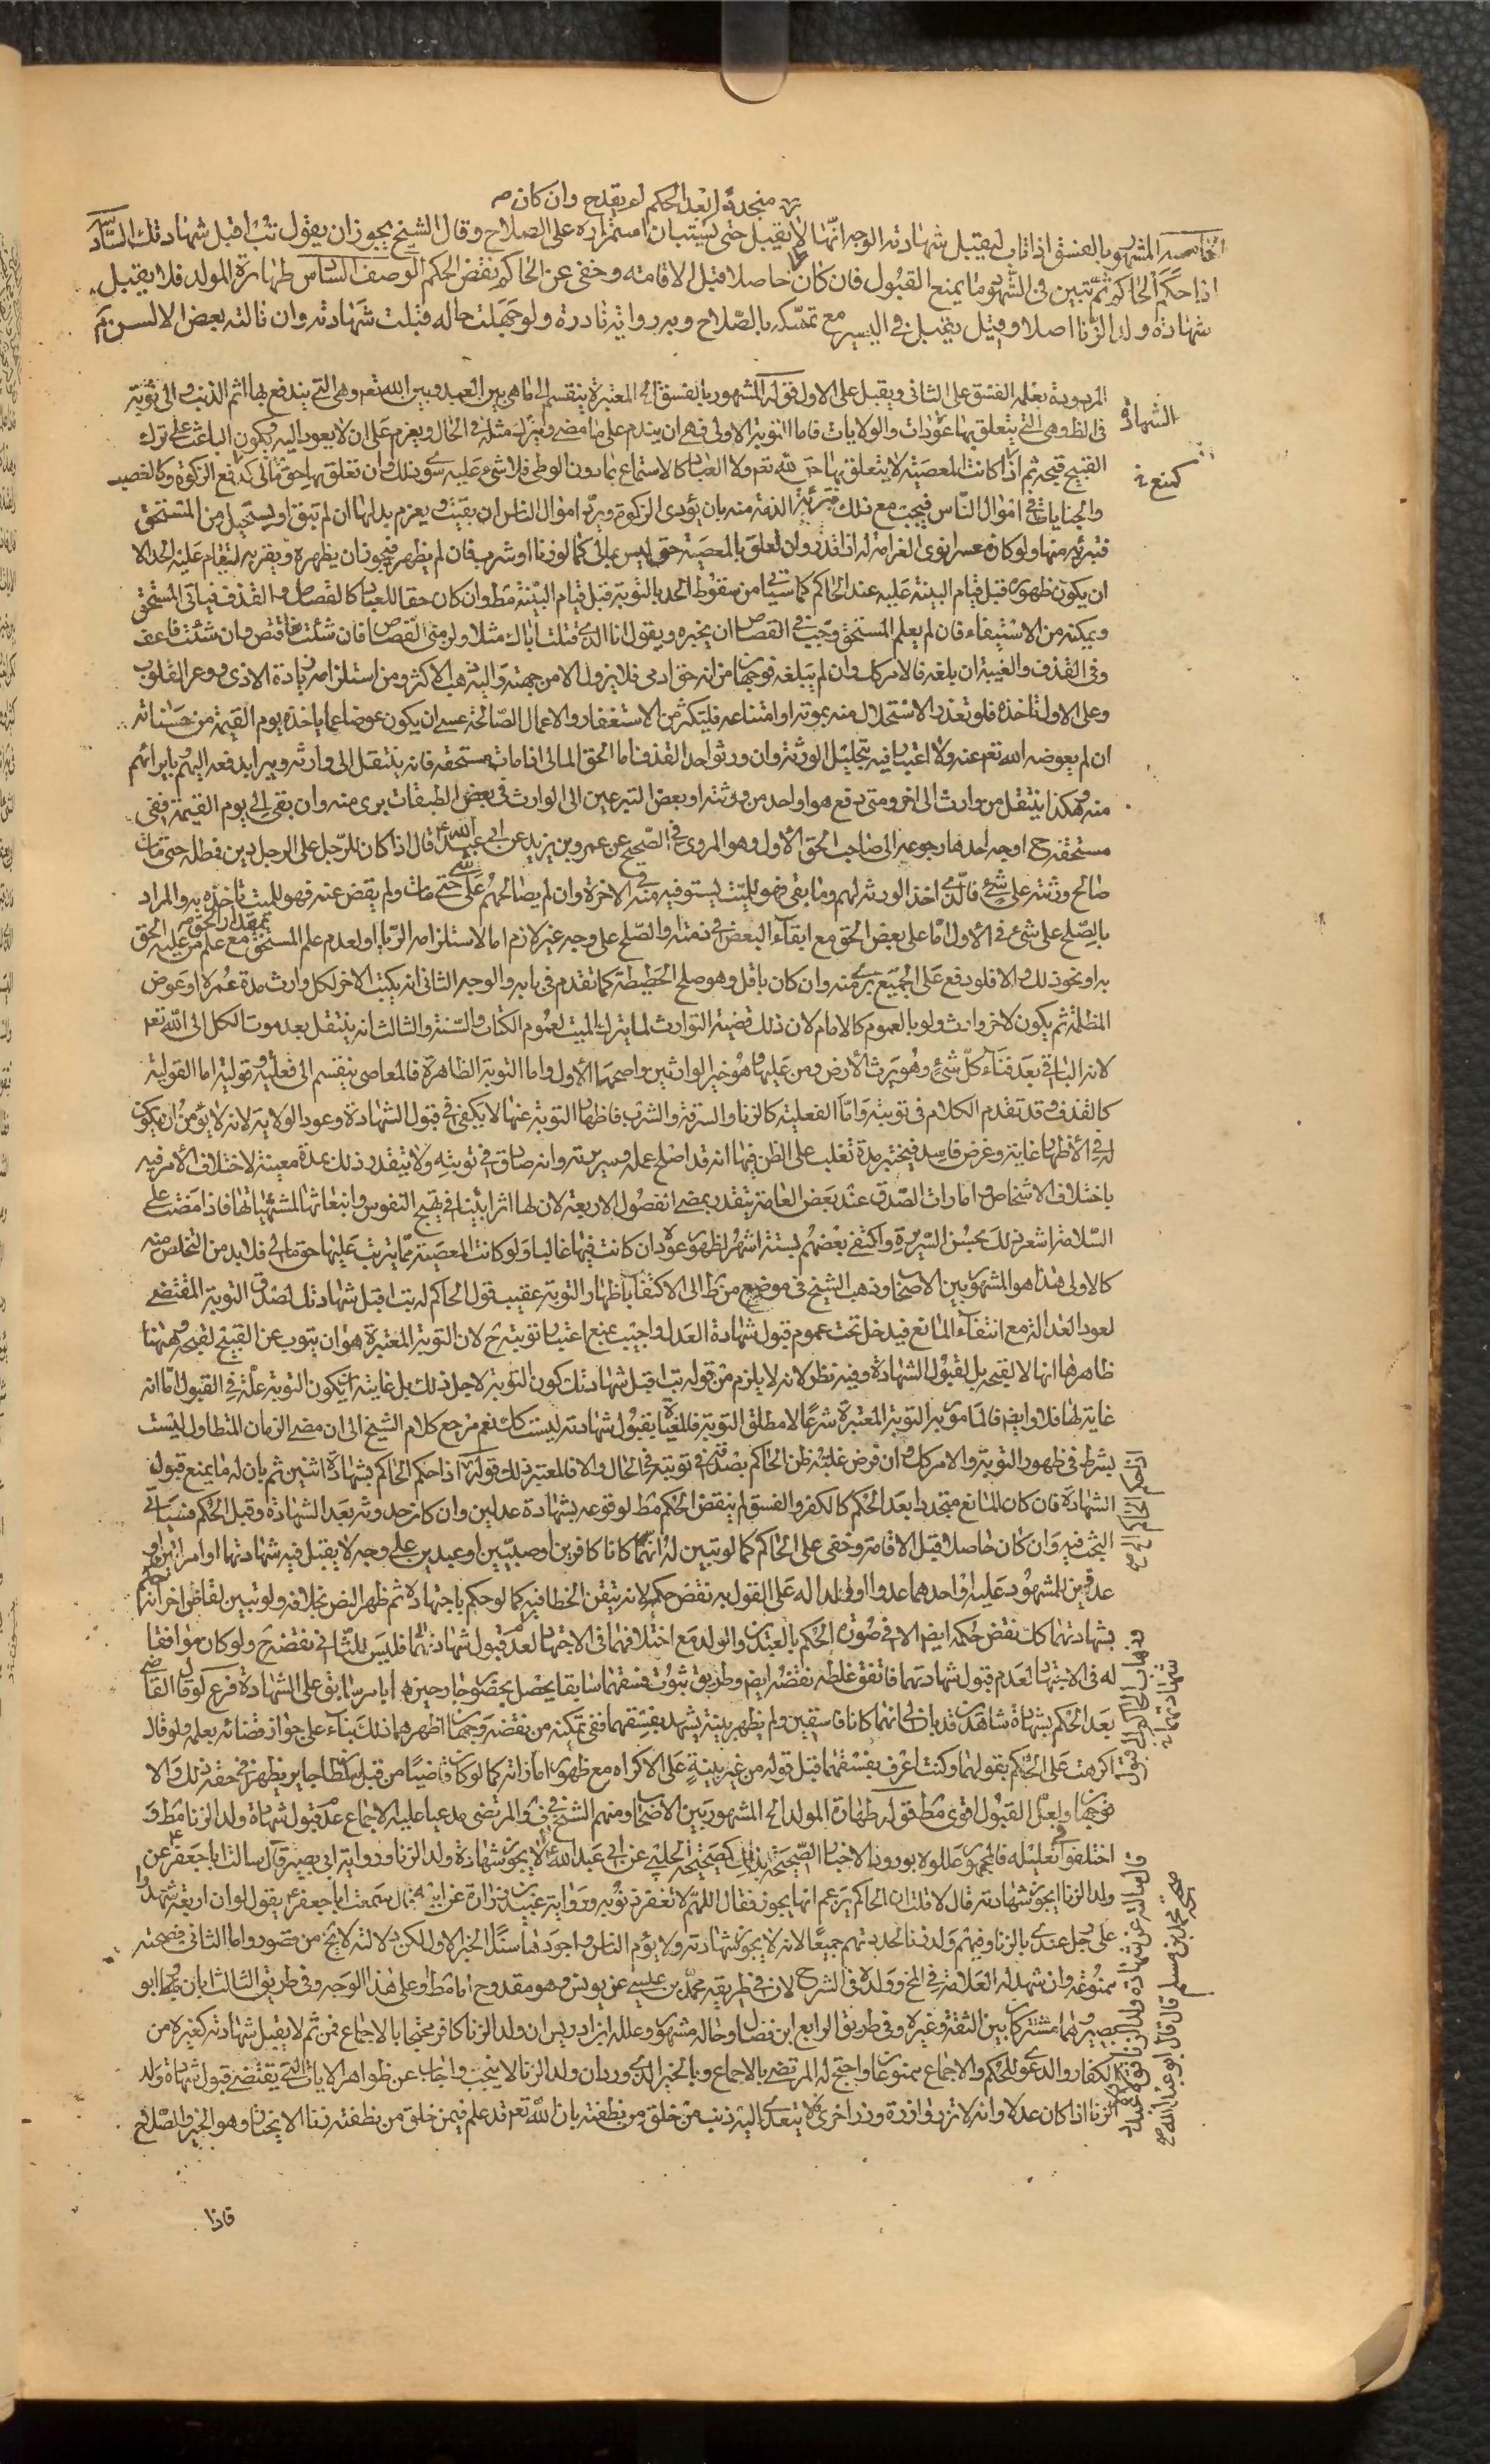 متجددا بعد الحكم لم يقدح وان كان
الخامسة المشهور بالفسق اذا تاب ليقبل شهادته الوجه انها لا يقبل حتى يستبان استمراره على الصلاح وقال الشيخ يجوز ان يقول تب اقبل شهادتك السادسة
اذا حكم الحاكم ثم تبين في الشهود ما يمنع القبول فان كان حاصلا قبل الاقامة وخفى عن الحاكم نقض الحكم الوصف السادس طهارة المولد فلا يقبل
شهادة ولد الزنا اصلا وقيل يقبل في اليسير مع تمسكه بالصلاح وبه رواية نادرة ولو جهلت حاله قبلت شهادته وان نالته بعض الالسن
الشهادة
المردودة بعلة الفسق على الثاني ويقبل على الاول قوله المشهور بالفسق الخ المعتبرة ينقسم الى ما هي بين العبد وبين الله تعم وهي التي يندفع بها اثم الذنب والى توبة
في الظ وهي التي يتعلق بها عود الولايات فاما التوبة الاولى فهي ان يندم على ما مضى ويترك مثله في الحال ويعزم على ان لا يعود اليه ويكون الباعث على ترك
كمنع
القبيح قبحه ثم اذا كانت المعصية لا يتعلق بها حق لله تعم ولا العباد كالاستمتاع بما دون الوطي فلا شيء عليه سوى ذلك وان تعلق بها حق مالي كمنع الزكوة وكالغصب
والجنايات في اموال الناس فيجب مع ذلك تبرئة الذمة منه بان يؤدي الزكوة ويرد اموال الناس ان بقيت ويعزم بدلها ان لم تبق او يستحيل من المستحق
فتبرئه منها ولو كان معسرا نوى الغرامة له اذا قدر وان تعلق بالمعصية حق ليس بمالي كما لو زنا او شرب فان لم يظهر فيجوز ان يظهره ويقر به ليقام عليه الحد الا
ان يكون ظهوره قبل قيام البينة عليه عند الحاكم كما سيأتي من سقوط الحد بالتوبة قبل قيام البينة مط وان كان حقا للعباد كالقصاص والقذف فيأتي المستحق
ويمكنه من الاستيفاء فان لم يعلم المستحق وجب في القصاص ان يخبره ويقول انا الذي قتلت اباك مثلا ولزمني القصاص فان شئت فاقتص وان شئت فاعف
وفي القذف والغيبة ان بلغه فالامر كك وان لم يبلغه فوجهان من انه حق ادمي فلا يزول الا من جهته واليه ذهب الاكثر ومن استلزامه زيادة الاذى ووغر القلوب
وعلى الاول فلو تعذر الاستحلال منه بموته او امتناعه فليكثر من الاستغفار والاعمال الصالحة عسى ان يكون عوضا عما ياخذه يوم القيمة من حسناته
ان لم يعوضه الله تعم عنه ولا اعتبار فيه بتحليل الورثة وان ورثوا حد القذف اما الحق المالي اذا مات مستحقه فانه ينتقل الى وارثه ويبرا بدفعه اليهم بابرائهم
منه وهكذا ينتقل من وارث الى اخر ومتى دفع هو او احد من ورثته او بعض المتبرعين الى الوارث في بعض الطبقات برئ منه وان بقي الى يوم القيمة ففي
مستحقه ح اوجه احدها رجوعه الى صاحب الحق الاول وهو المروي في الصحيح عن عمرو بن يزيد عن ابي عبد الله ع قال اذا كان للرجل على الرجل دين فمطله حتى مات
صالح ورثته على شيء فالذي اخذ الورثة لهم وما بقي فهو للميت يستوفيه منه في الاخرة وان لم يصالحهم على شيء حتى مات ولم يقض عنه فهو للميت ياخذه به والمراد
بالصلح على شيء في الاول اما على بعض الحق مع ابقاء البعض في ذمته والصلح على وجه غير لازم اما لاستلزامه الربا او لعدم علم المستحق بمقدار الحق مع علم من عليه الحق
به او نحو ذلك والا فلو دفع على الجميع برئ منه وان كان باقل وهو صلح الحطيطة كما تقدم في بابه والوجه الثاني انه يكتب الاخر لكل وارث مدة عمره او عوض
المظلمة ثم يكون لاخر وارث ولو بالعموم كالامام لان ذلك قضية التوارث لما يترك الميت لعموم الكتاب والسنة والثالث انه ينتقل بعد موت الكل الى الله تعم
لانه الباقي بعد فناء كل شيء وهو يرث الارض ومن عليها وهو خير الوارثين واصحها الاول واما التوبة الظاهرة فالمعاصي ينقسم الى فعلية وقولية اما القولية
كالقذف وقد تقدم الكلام في توبته واما الفعلية كالزنا والسرقة والشرب فاظهار التوبة عنها لا يكفي في قبول الشهادة وعود الولاية لانه لا يؤمن ان يكون
له في الاظهار غاية وغرض فاسد فيختبر مدة تغلب على الظن فيها انه قد اصلح عمله وسريرته وانه صادق في توبته ولا يتقدر ذلك بمدة معينة لاختلاف الامر فيه
باختلاف الاشخاص وامارات الصدق عند بعض العامة يتقدر بمضي الفصول الاربعة لان لها اثرا بينا في تهيج النفوس وانبعاثها لمشتهياتها فاذا مضت على
السلامة اشعر ذلك بحسن السريرة واكتفى بعضهم بستة اشهر لظهور عوده ان كانت فيها غالبا ولو كانت المعصية مما يترتب عليها حق مالي فلا بد من التخلص منه
كالاولى هذا هو المشهور بين الاصحاب وذهب الشيخ في موضع من ط الى الاكتفاء باظهار التوبة عقيب قول الحاكم له تب اقبل شهادتك لصدق التوبة المقتضي
لعود العدالة مع انتفاء المانع فيدخل تحت عموم قبول شهادة العدل واجيب بمنع اعتبار توبته ح لان التوبة المعتبرة هو ان يتوب عن القبيح لقبحه وههنا
ظاهرها انها لا لقبحه بل لقبول الشهادة وفيه نظر لانه لا يلزم من قوله تب اقبل شهادتك كون التوبة لاجل ذلك بل غايته ان يكون التوبة علة في القبول اما انه
غاية لها فلا وايض فالمامور به التوبة المعتبرة شرعا لا مطلق التوبة فالمغياة بقبول شهادته ليست كك نعم مرجع كلام الشيخ الى ان مضي الزمان المتطاول ليست
بشرط في ظهور التوبة والامر كك ان فرض غلبة ظن الحاكم بصدقه في توبته في الحال والا فالمعتبر ذلك قوله اذا حكم الحاكم بشهادة اثنين ثم بان له ما يمنع قبول
الشهادة فان كان المانع متجددا بعد الحكم كالكفر والفسق لم ينقض الحكم مط لوقوعه بشهادة عدلين وان كان حدوثه بعد الشهادة وقبل الحكم فسيأتي
البحث فيه وان كان حاصلا قبل الاقامة وخفي على الحاكم كما لو تبين له انهما كانا كافرين او صبيين او عبدين على وجه لا يقبل فيه شهادتهما او امراتين او
عدوين للمشهود عليه او احدهما عدوا او ولدا له على القول به نقض حكمه لانه تيقن الخطا فيه كما لو حكم باجتهاده ثم ظهر النص بخلافه ولو تبين لقاض اخر انه
بشهادتهما كك نقض حكمه ايض الا في صورة الحكم بالعبدين والولد مع اختلافهما في الاجتهاد لعدم قبول شهادتهما فليس للثاني نقضه ح ولو كان موافقا
له في الاجتهاد لعدم قبول شهادتهما فاتفق غلطه نقضه ايض وطريق ثبوت فسقهما سابقا يحصل بحضور جارحين بامر سابق على الشهادة فرع لو قال القاضي
بعد الحكم بشهادة شاهدين قد بان لي انهما كانا فاسقين ولم يظهر بينة يشهد بفسقهما ففي تمكنه من نقضه وجهان اظهرهما ذلك بناء على جواز قضائه بعلمه ولو قال
اكرهت على الحكم بقولهما وكنت اعرف بفسقهما قبل قوله من غير بينة على الاكراه مع ظهور اماراته كما لو كان قاضيا من قبل سلطان جاير يظهر في حقه ذلك والا
فوجهان ولعل القبول اقوى مط قوله طهارة المولد الخ المشهور بين الاصحاب ومنهم الشيخ في ف والمرتضى مدعيا عليه الاجماع عدم قبول شهادة ولد الزنا مط و
اختلفوا في تعليله فالجمهور عللوه بورود الاخبار الصحيحة بذلك كصحيحة الحلبي عن ابي عبد الله ع لا يجوز شهادة ولد الزنا ورواية ابي بصير قال سالت ابا جعفر ع عن
ولد الزنا ايجوز شهادته قال لا قلت ان الحاكم يزعم انها يجوز فقال اللهم لا تغفر ذنوبه ورواية عبيد بن زرارة عن ابيه قال سمعت ابا جعفر ع يقول لو ان اربعة شهدوا
على رجل عندي بالزنا وفيهم ولد زنا لحددتهم جميعا لانه لا يجوز شهادته ولا يؤم الناس واجودها سندا الخبر الاول لكن دلالته لا يخ من قصور واما الثاني فصحته
ممنوعة وان شهد له العلامة في المخ وولده في الشرح لان في طريقه محمد بن عيسى عن يونس وهو مقدوح اما مط او على هذا الوجه وفي طريق الثالث ابان وابو
بصير وهما مشتركان بين الثقة وغيره وفي طريق الرابع ابن فضال وحاله مشهور وعلله ابن ادريس ان ولد الزنا كافر محتجا بالاجماع فمن ثم لا يقبل شهادته كغيره من
الكفار والدعوى للحكم والاجماع ممنوعان واحتج له المرتضى بالاجماع وبالخبر الذي ورد ان ولد الزنا لا ينجب واجاب عن ظواهر الايات التي يقتضي قبول شهادة ولد
الزنا اذا كان عدلا وانه لا تزر وازرة وزر اخرى فلا يتعدى اليه ذنب من خلق من نطفته بان الله تعم قد علم فيمن خلق من نطفته زنا الا يختار هو الخير والصلاح
فاذا
قال سالته عن شهادة ولد الزنا فقال لا ولا عبد
صحيحة محمد بن مسلم قال قال ابو عبد الله ع